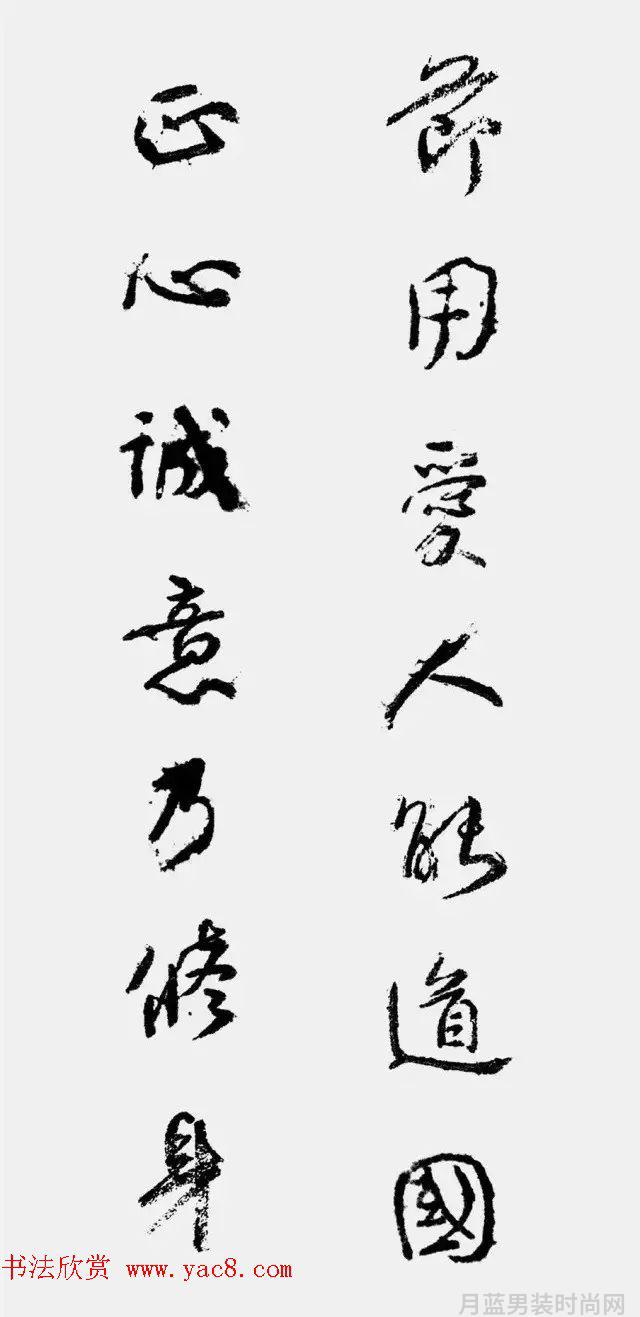 節用愛人能道國
正心誠意乃修身
书法欣赏 www.yac8.com
月蓝男装时尚网